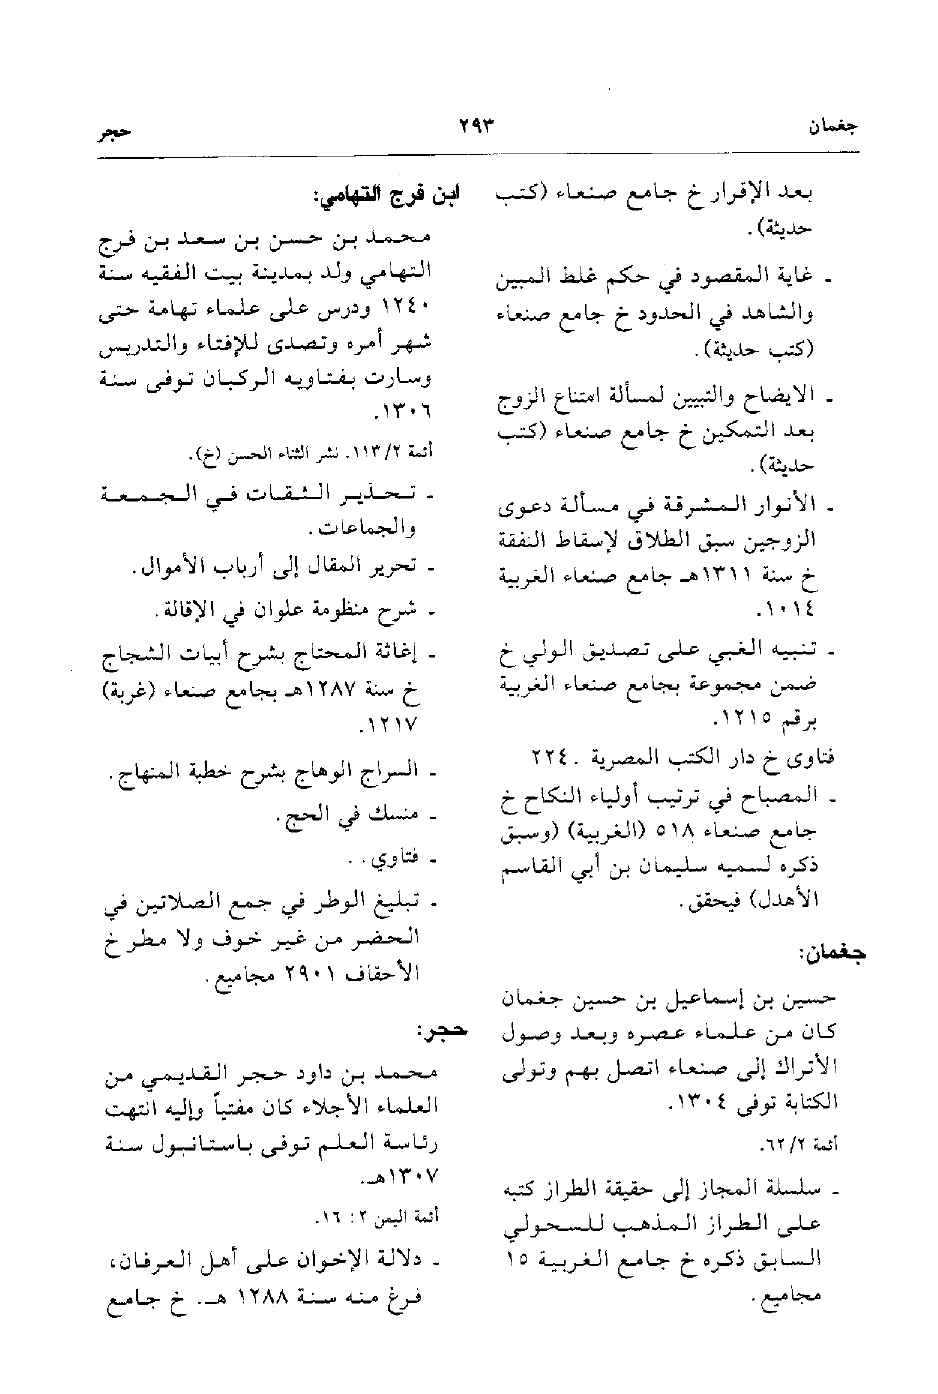 جغمان
٢٩٣
حجر
بعد الإقرار خ جامع صنعاء (كتب
حديثة).
- غاية المقصود في حكم غلط المبين
والشاهد في الحدود خ جامع صنعاء
(كتب حديثة).
- الايضاح والتبيين لمسألة امتناع الزوج
بعد التمكين خ جامع صنعاء (كتب
حديثة).
- الأنوار المشرقة في مسألة دعوى
الزوجين سبق الطلاق لإسقاط النفقة
خ سنة ١٣١١هـ جامع صنعاء الغربية
١٠١٤.
- تنبيه الغبي على تصديق الولي خ
ضمن مجموعة بجامع صنعاء الغربية
برقم ١٢١٥.
فتاوى خ دار الكتب المصرية . ٢٢٤
- المصباح في ترتيب أولياء النكاح خ
جامع صنعاء ٥١٨ (الغربية) (وسبق
ذكره لسميه سليمان بن أبي القاسم
الأهدل) فيحقق.
جغمان:
حسين بن إسماعيل بن حسين جغمان
كان من علماء عصره وبعد وصول
الأتراك إلى صنعاء اتصل بهم وتولى
الكتابة توفى ١٣٠٤.
أئمة ٦٢/٢.
- سلسلة المجاز إلى حقيقة الطراز كتبه
على الطراز المذهب للسحولي
السابق ذكره خ جامع الغربية ١٥
مجاميع.
ابن فرج التهامي:
محمد بن حسن بن سعد بن فرج
التهامي ولد بمدينة بيت الفقيه سنة
١٢٤٠ ودرس على علماء تهامة حتى
شهر أمره وتصدى للإفتاء والتدريس
وسارت بفتاويه الركبان توفى سنة
١٣٠٦.
أئمة ١١٣/٢. نشر الثناء الحسن (خ).
- تحذير الثقات في الجمعة
والجماعات.
- تحرير المقال إلى أرباب الأموال.
- شرح منظومة علوان في الإقالة.
- إغاثة المحتاج بشرح أبيات الشجاج
خ سنة ١٢٨٧هـ بجامع صنعاء (غربة)
١٢١٧.
- السراج الوهاج بشرح خطبة المنهاج.
- منسك في الحج.
- فتاوي. .
- تبليغ الوطر في جمع الصلاتين في
الحضر من غير خوف ولا مطر خ
الأحقاف ٢٩٠١ مجاميع.
حجر:
محمد بن داود حجر القديمي من
العلماء الأجلاء كان مفتياً وإليه انتهت
رئاسة العلم توفى باستانبول سنة
١٣٠٧هـ.
أئمة اليمن ٢: ١٦.
- دلالة الإخوان على أهل العرفان،
فرغ منه سنة ١٢٨٨ هـ. خ جامع